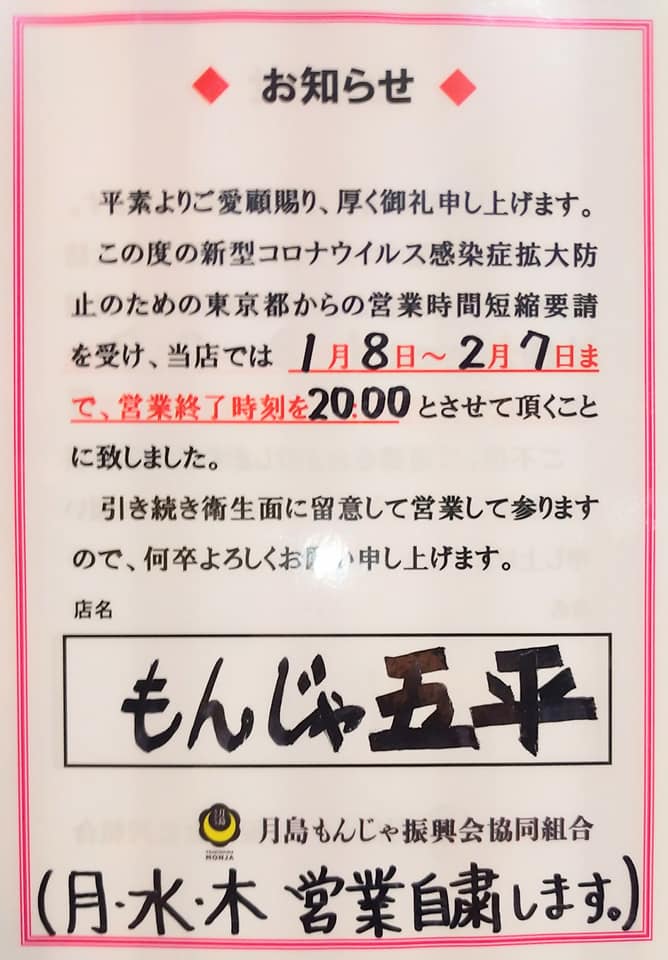 ◆ お知らせ ◆
平素よりご愛顧賜り、厚く御礼申し上げます。
この度の新型コロナウイルス感染症拡大防
止のための東京都からの営業時間短縮要請
を受け、当店では 1月8日～2月7日ま
で、営業終了時刻を20:00とさせて頂くこと
に致しました。
引き続き衛生面に留意して営業して参ります
ので、何卒よろしくお願い申し上げます。
店名
もんじゃ五平
月島もんじゃ振興会協同組合
MONJA
(月・水・木 営業自粛します。)